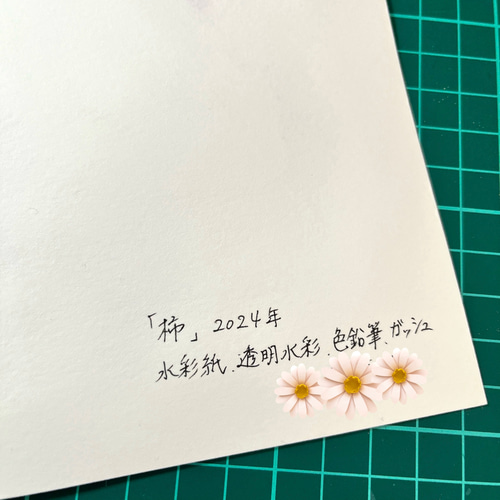 「柿」2024年
水彩紙、透明水彩、色鉛筆、ガッシュ